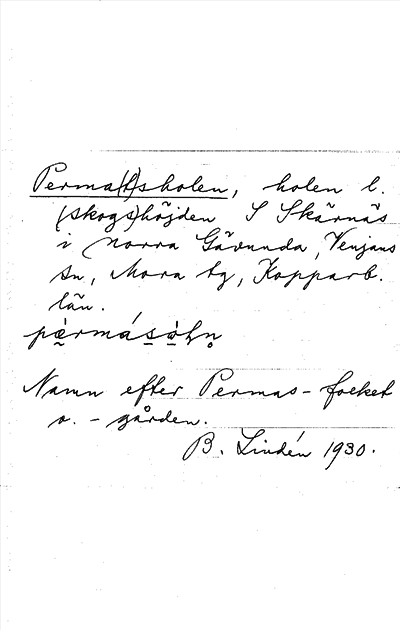 Perma(t)sholen, holen l.
(skogs)höjden S Skärnäs
i norra Gävunda, Venjans
sn, Mora tg, Kopparb.
län.
Namn efter Permas-folket
o. - gården.
B. Lindén 1930.